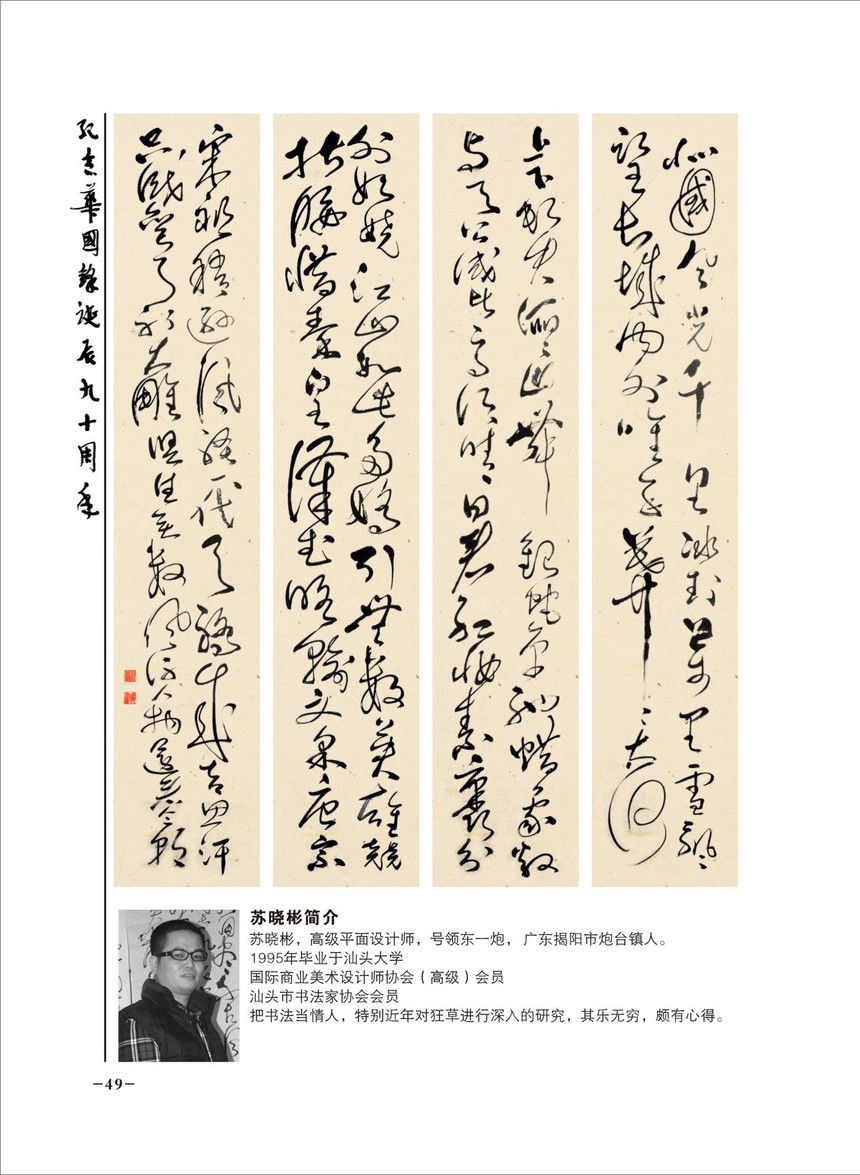 紀念華國鋒誕辰九十周年
北國風光千里冰封萬里雪飄
望長城內外唯餘莽莽大河
上下頓失滔滔山舞銀蛇原馳蠟象欲
與天公試比高須晴日看紅妝素裹分
外妖嬈江山如此多嬌引無數英雄競
折腰惜秦皇漢武略輸文采唐宗
宋祖稍遜風騷一代天驕成吉思汗
只識彎弓射大雕俱往矣數風流人物還看今朝
苏晓彬简介
苏晓彬，高级平面设计师，号领东一炮，广东揭阳市炮台镇人。
1995年毕业于汕头大学
国际商业美术设计师协会（高级）会员
汕头市书法家协会会员
把书法当情人，特别近年对狂草进行深入的研究，其乐无穷，颇有心得。
-49-